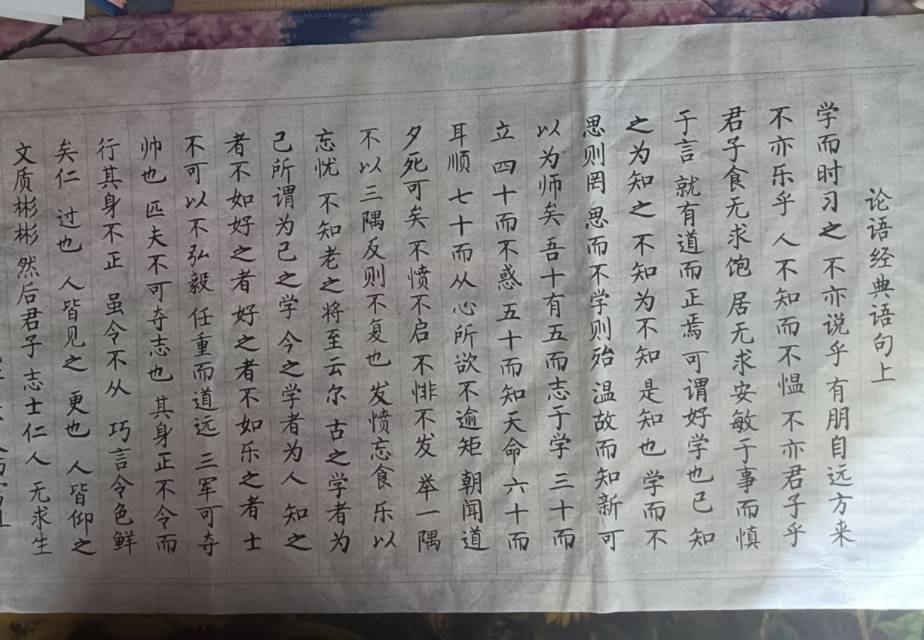 论语经典语句上
学而时习之 不亦说乎 有朋自远方来
不亦乐乎 人不知而不愠 不亦君子乎
君子食无求饱 居无求安敏于事而慎
于言 就有道而正焉 可谓好学也已 知
之为知之 不知为不知 是知也 学而不
思则罔 思而不学则殆 温故而知新 可
以为师矣 吾十有五而志于学 三十而
立 四十而不惑 五十而知天命 六十而
耳顺 七十而从心所欲不逾矩 朝闻道
夕死可矣 不愤不启 不悱不发 举一隅
不以三隅反则不复也 发愤忘食 乐以
忘忧 不知老之将至云尔 古之学者为
己所谓为己之学 今之学者为人 知之
者不如好之者 好之者不如乐之者 士
不可以不弘毅 任重而道远 三军可夺
帅也 匹夫不可夺志也 其身正不令而
行其身不正 虽令不从 巧言令色鲜
矣仁 过也 人皆见之 更也 人皆仰之
文质彬彬 然后君子 志士仁人 无求生